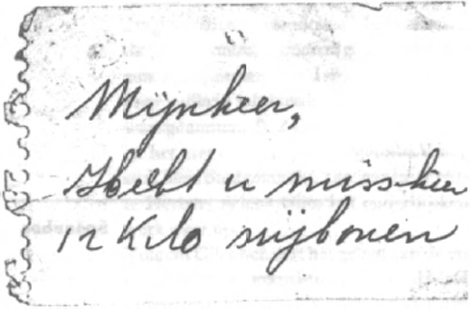 Mijnheer,
Hebt u misschien
12 Kilo snijbonen